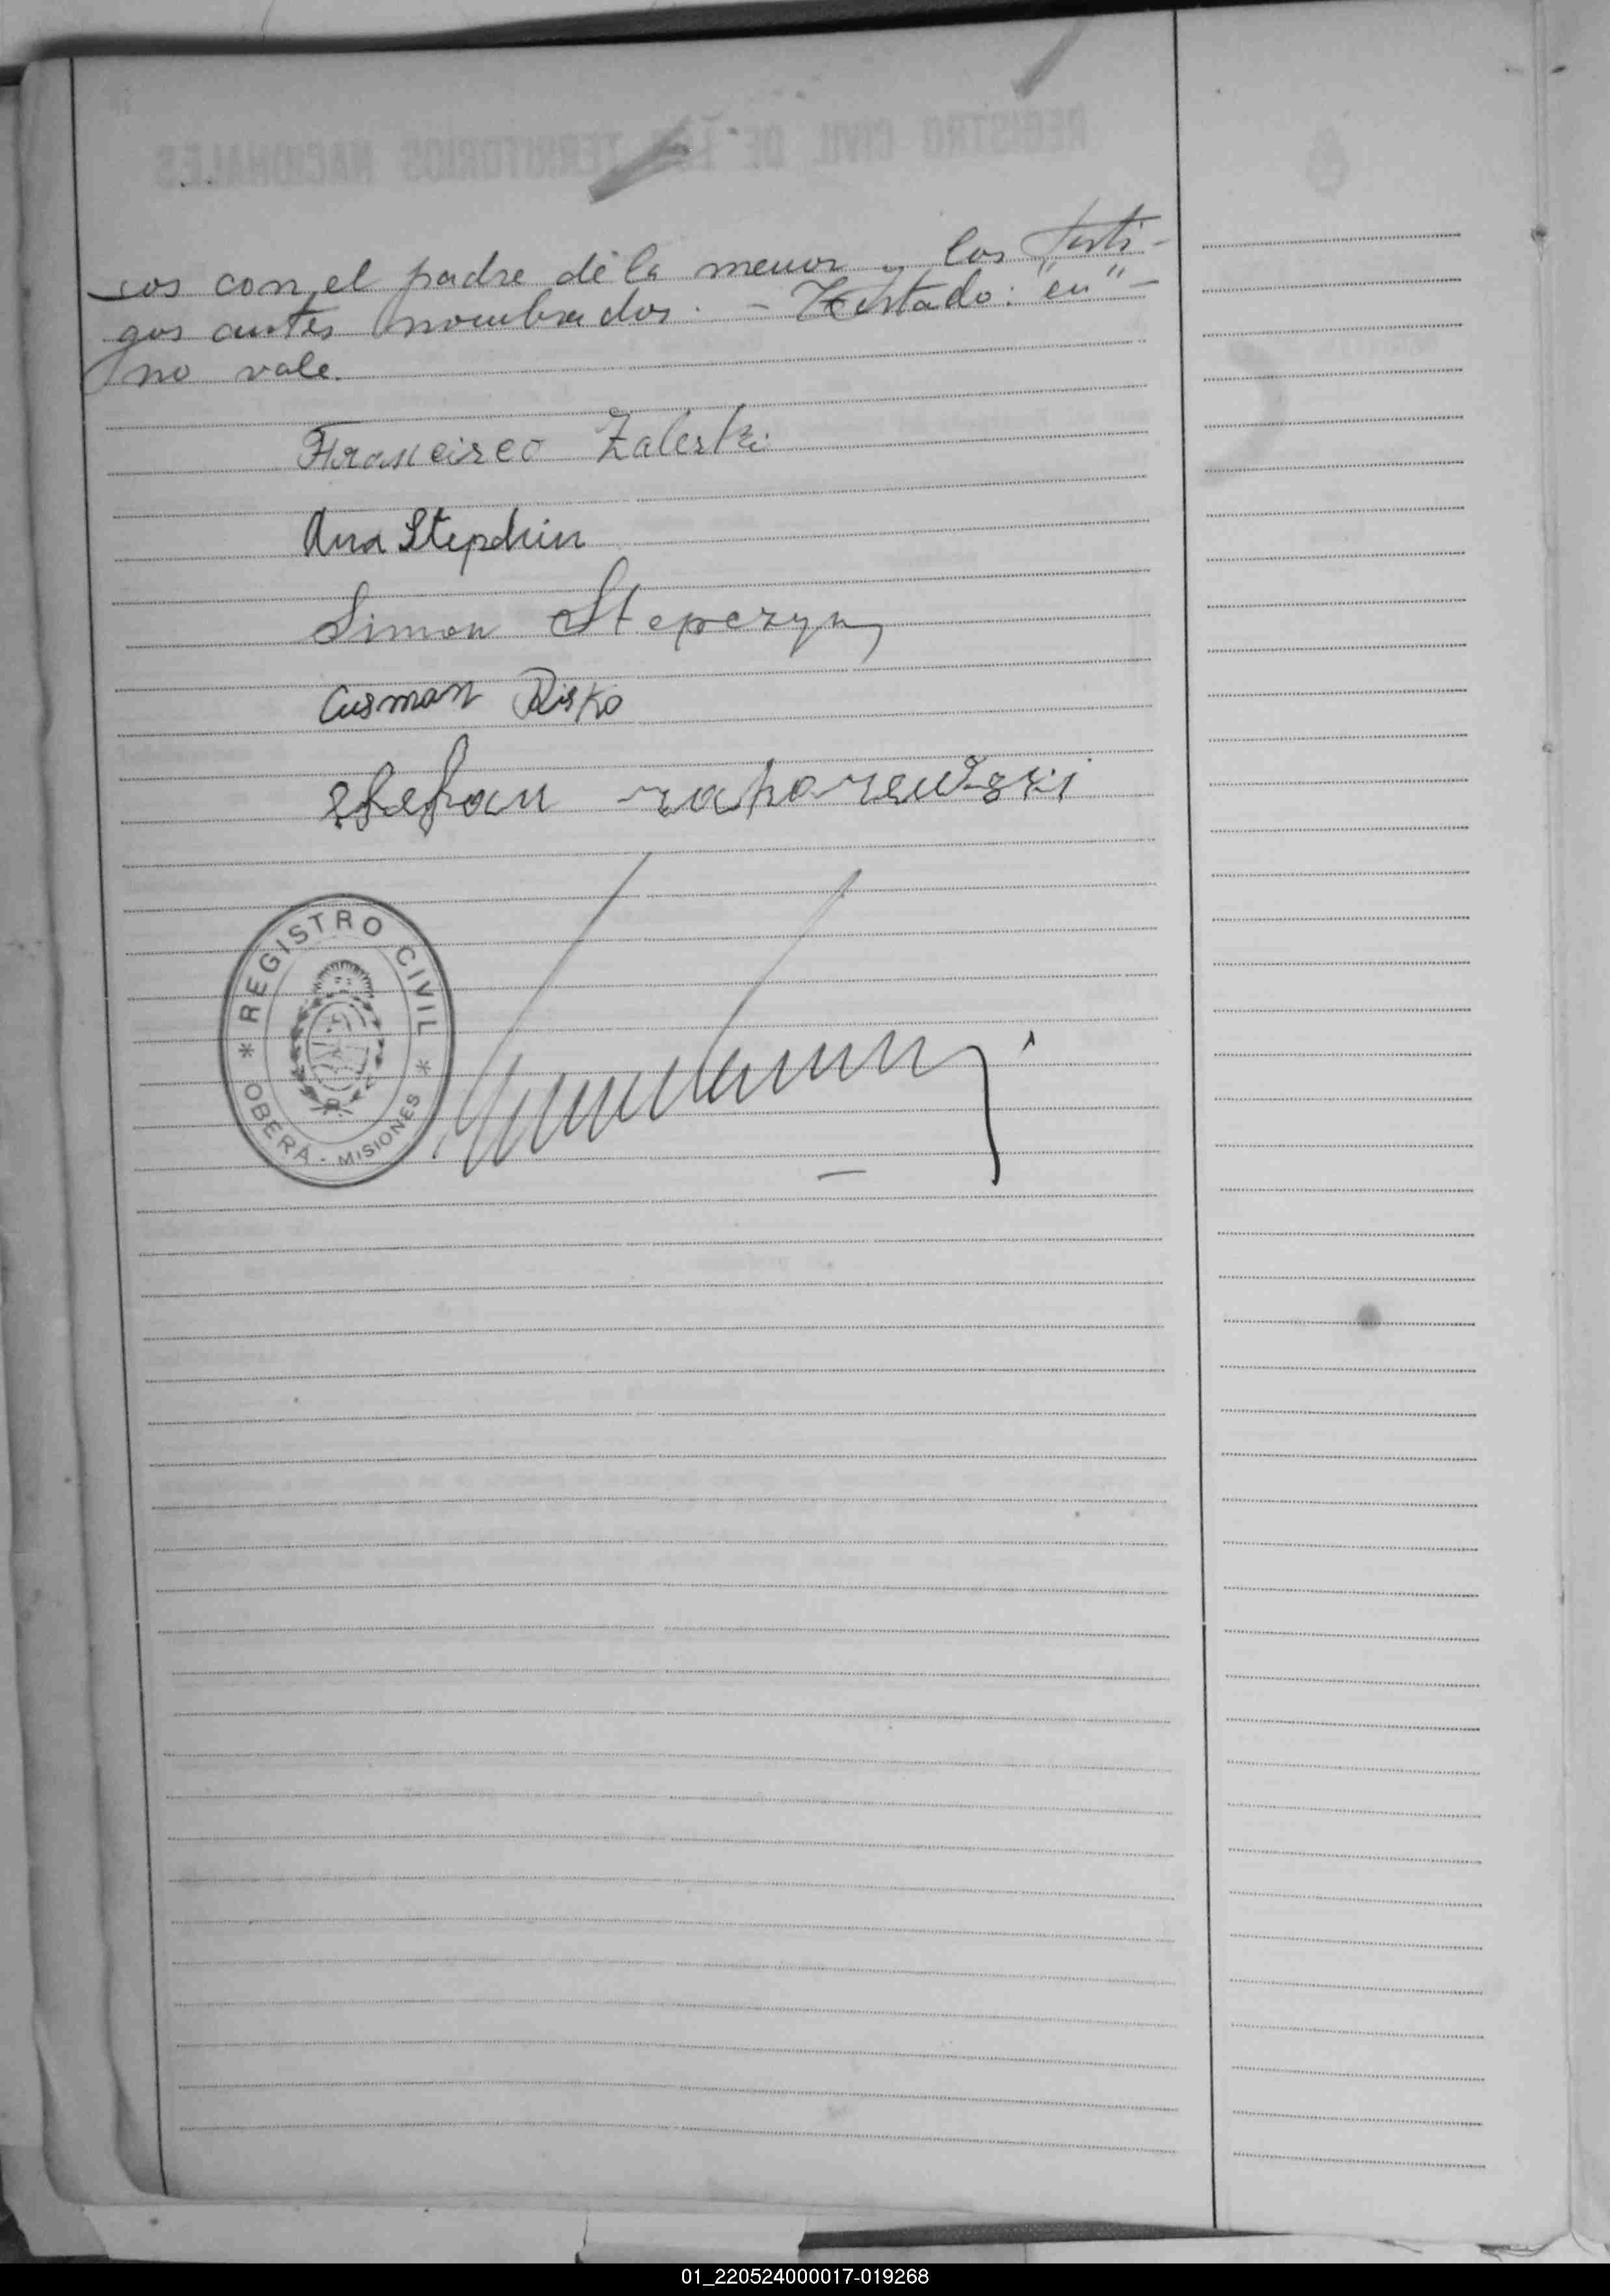 sos con el padre de la menor y los testi-
gos antes nombrados. - Testado: "en" -
no vale.
Francisco Zaleski
Ana Stepchin
Simon Stepczyn
Cusman Risko
REGISTRO CIVIL
OBERÁ - MISIONES
01_220524000017-019268